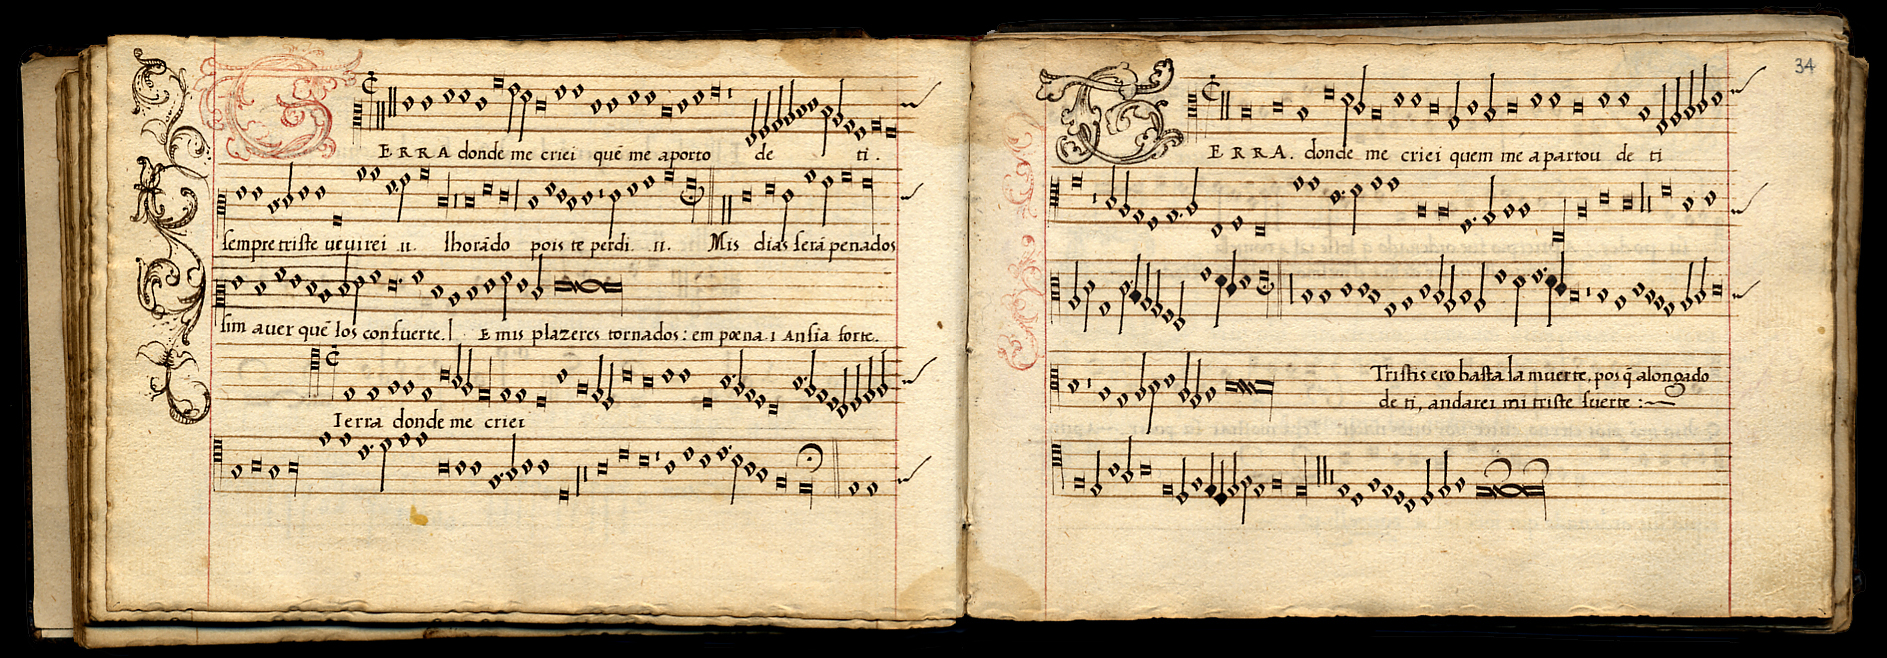 TERRA donde me criei quẽ me aporto de ti.
sempre triste ueuirei .ıı. lhorãdo pois te perdi. .ıı. Mis dias serã penados
sim auer quẽ los confuerte. E mis plazeres tornados: em pœna.ı Ansia forte.
Terra donde me criei
34
TERRA. donde me criei quem me apartou de ti
Tristis ero basta la muerte, pos q̃ alongado
de ti, andarei mi triste suerte :~